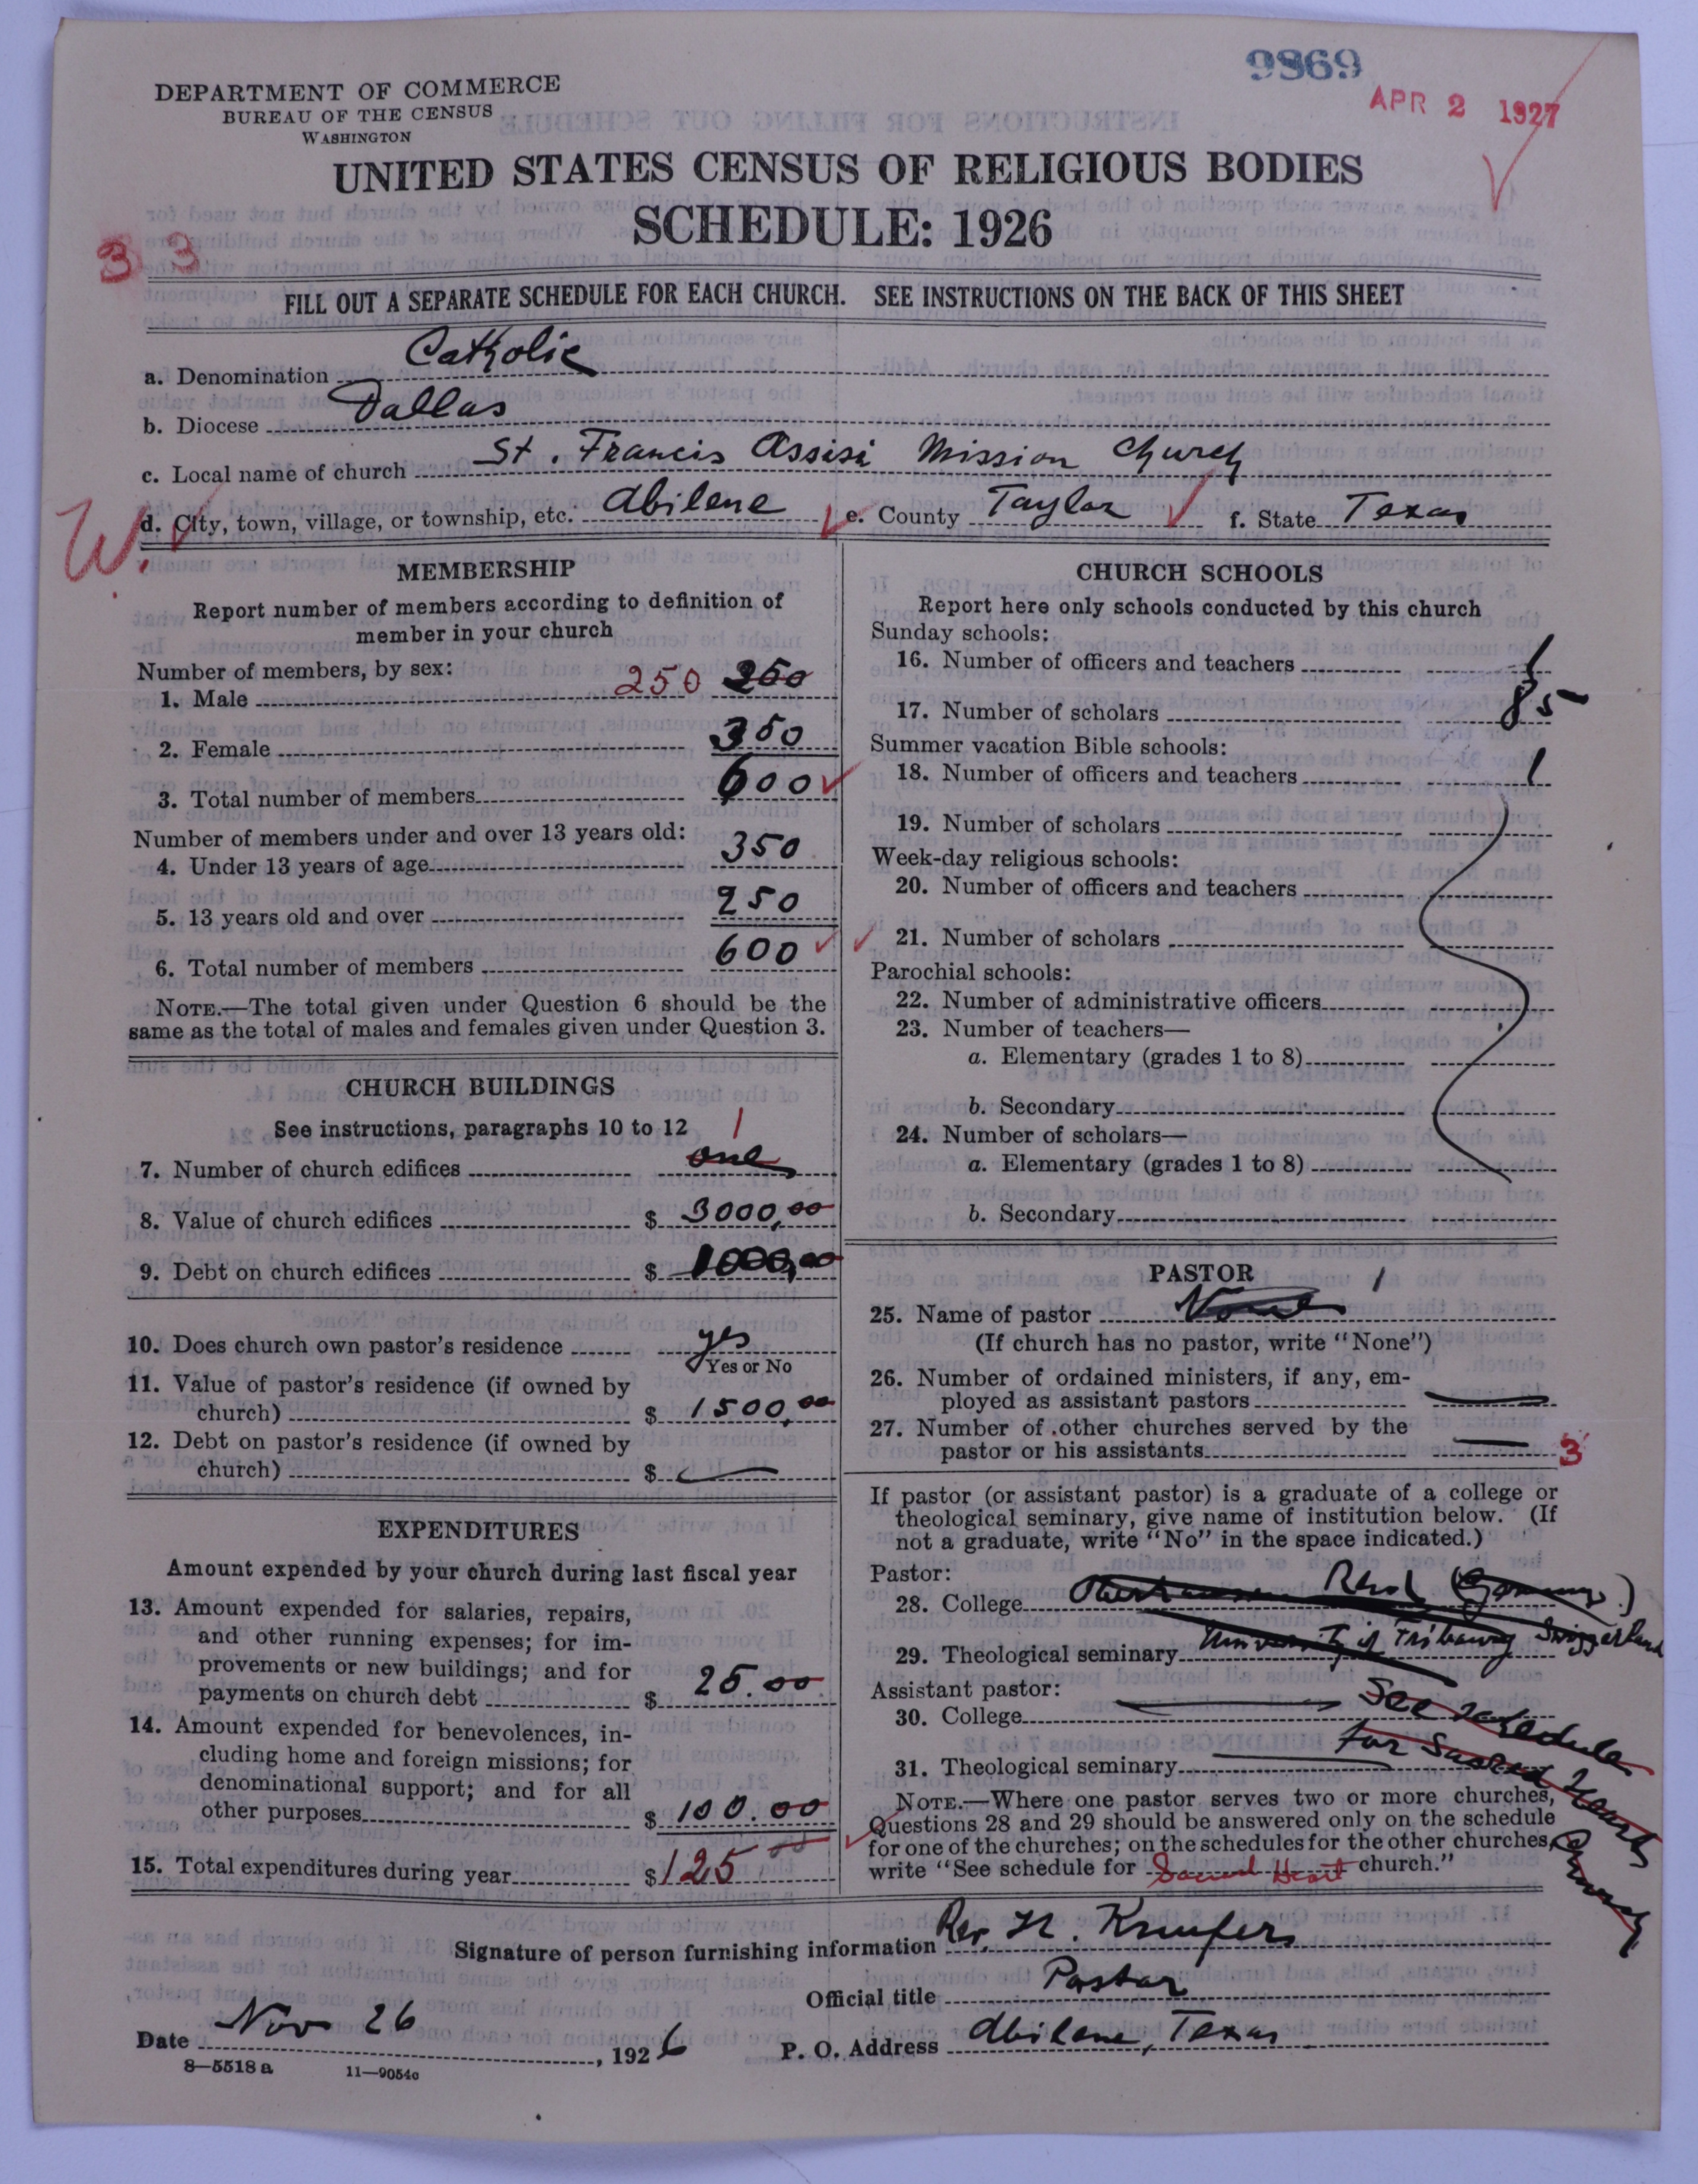 9869
APR 2 1927
DEPARTMENT OF COMMERCE
BUREAU OF THE CENSUS
WASHINGTON
UNITED STATES CENSUS OF RELIGIOUS BODIES
SCHEDULE: 1926
3 3
FILL OUT A SEPARATE SCHEDULE FOR EACH CHURCH. SEE INSTRUCTIONS ON THE BACK OF THIS SHEET
a. Denomination Catholic
b. Diocese Dallas
c. Local name of church St. Francis Assisi Mission Church
W.
d. City, town, village, or township, etc. Abilene e. County Taylor f. State Texas
MEMBERSHIP
Report number of members according to definition of
member in your church
Number of members, by sex:
1. Male 250 250
2. Female 350
3. Total number of members 600
Number of members under and over 13 years old:
4. Under 13 years of age 350
5. 13 years old and over 250
6. Total number of members 600
NOTE.—The total given under Question 6 should be the
same as the total of males and females given under Question 3.
CHURCH BUILDINGS
See instructions, paragraphs 10 to 12
7. Number of church edifices one 1
8. Value of church edifices $ 3000,00
9. Debt on church edifices $ 1000,00
10. Does church own pastor's residence yes
Yes or No
11. Value of pastor's residence (if owned by
church) $ 1500,00
12. Debt on pastor's residence (if owned by
church) $ —
EXPENDITURES
Amount expended by your church during last fiscal year
13. Amount expended for salaries, repairs,
and other running expenses; for im-
provements or new buildings; and for
payments on church debt $ 25.00
14. Amount expended for benevolences, in-
cluding home and foreign missions; for
denominational support; and for all
other purposes $ 100.00
15. Total expenditures during year $ 125 00
CHURCH SCHOOLS
Report here only schools conducted by this church
Sunday schools:
16. Number of officers and teachers 1
17. Number of scholars 85
Summer vacation Bible schools:
18. Number of officers and teachers 1
19. Number of scholars
Week-day religious schools:
20. Number of officers and teachers
21. Number of scholars
Parochial schools:
22. Number of administrative officers
23. Number of teachers—
a. Elementary (grades 1 to 8)
b. Secondary
24. Number of scholars—
a. Elementary (grades 1 to 8)
b. Secondary
PASTOR
25. Name of pastor None 1
(If church has no pastor, write "None")
26. Number of ordained ministers, if any, em-
ployed as assistant pastors —
27. Number of other churches served by the
pastor or his assistants — 3
If pastor (or assistant pastor) is a graduate of a college or
theological seminary, give name of institution below. (If
not a graduate, write "No" in the space indicated.)
Pastor:
28. College
29. Theological seminary University of
Assistant pastor:
30. College — See schedule
31. Theological seminary — for Sacred Heart Church
NOTE.—Where one pastor serves two or more churches,
Questions 28 and 29 should be answered only on the schedule
for one of the churches; on the schedules for the other churches,
write "See schedule for Sacred Heart church."
Signature of person furnishing information Rev. H. Knufer
Official title Pastor
Date Nov 26, 1926 P. O. Address Abilene, Texas
8—5518 a 11—9054a